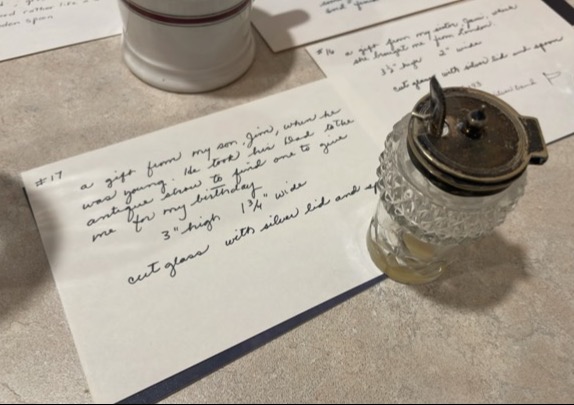 rather like
#16 a gift from my sister Jean, when
she brought me from London.
3½" high 2" wide
cut glass with silver lid and spoon
#17 a gift from my son, Jim, when he
was young. He took his Dad to the
antique show to find one to give
me for my birthday
3" high 1¾" wide
cut glass with silver lid and